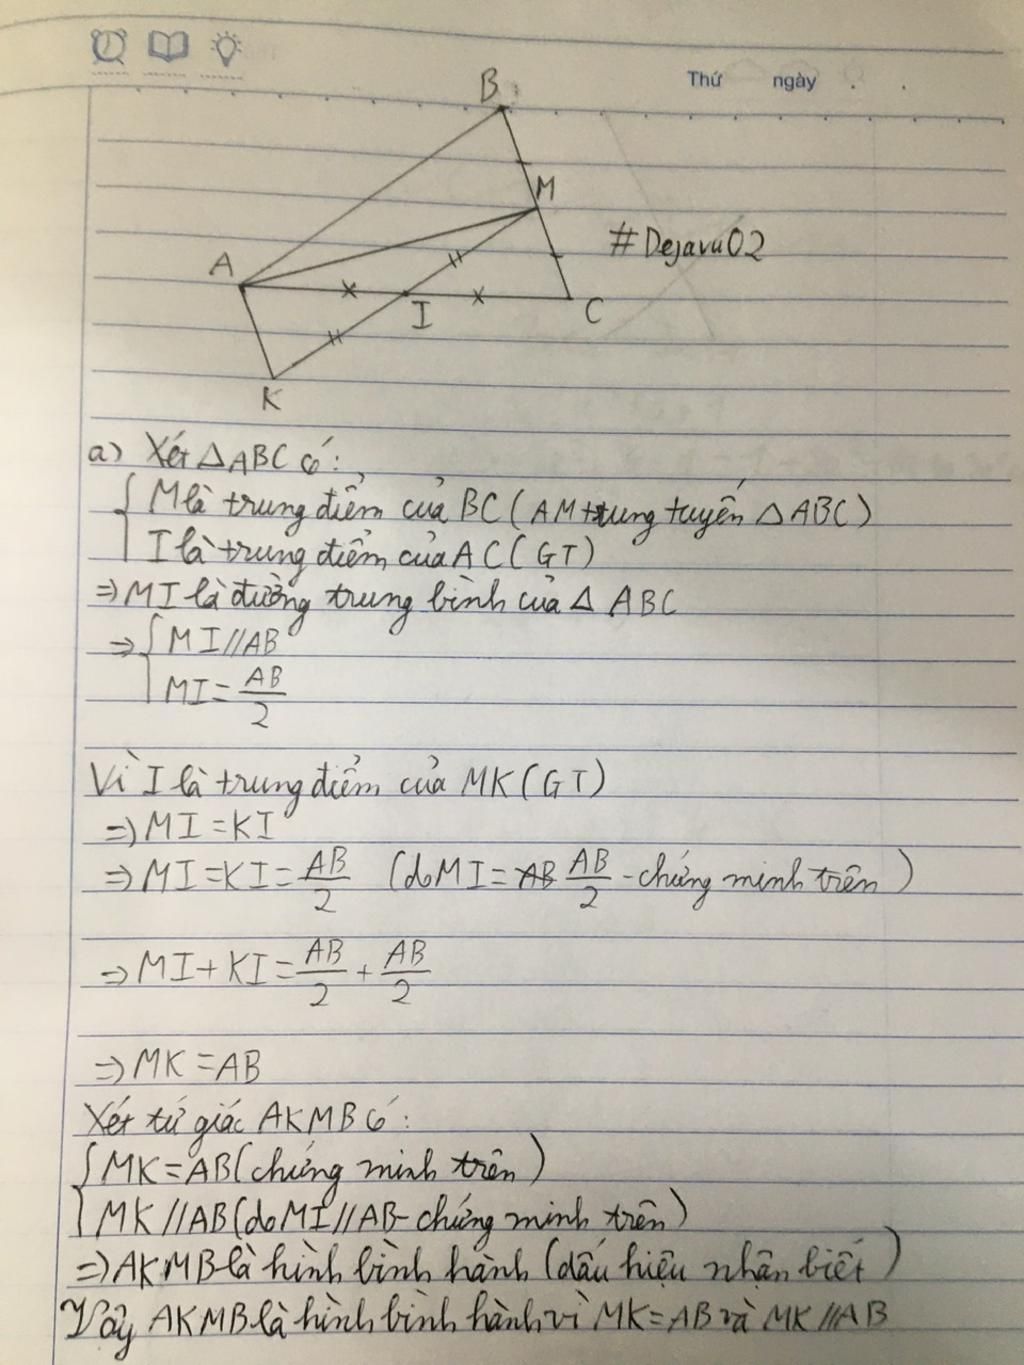 Thứ ngày . .
B
M
#Dejavu02
A
I
C
K
a) Xét △ABC có:
{ M là trung điểm của BC (AM trung tuyến △ABC)
I là trung điểm của AC (GT)
⇒ MI là đường trung bình của △ ABC
⇒ { MI // AB
MI = AB/2
Vì I là trung điểm của MK (GT)
⇒ MI = KI
⇒ MI = KI = AB/2 (do MI = AB AB/2 - chứng minh trên)
⇒ MI + KI = AB/2 + AB/2
⇒ MK = AB
Xét tứ giác AKMB có:
{ MK = AB (chứng minh trên)
MK // AB (do MI // AB - chứng minh trên)
⇒ AKMB là hình bình hành (dấu hiệu nhận biết)
Vậy AKMB là hình bình hành vì MK = AB và MK // AB